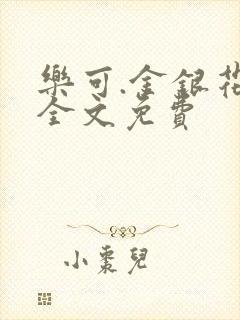 樂可.金銀花
全文免費
小棗兒